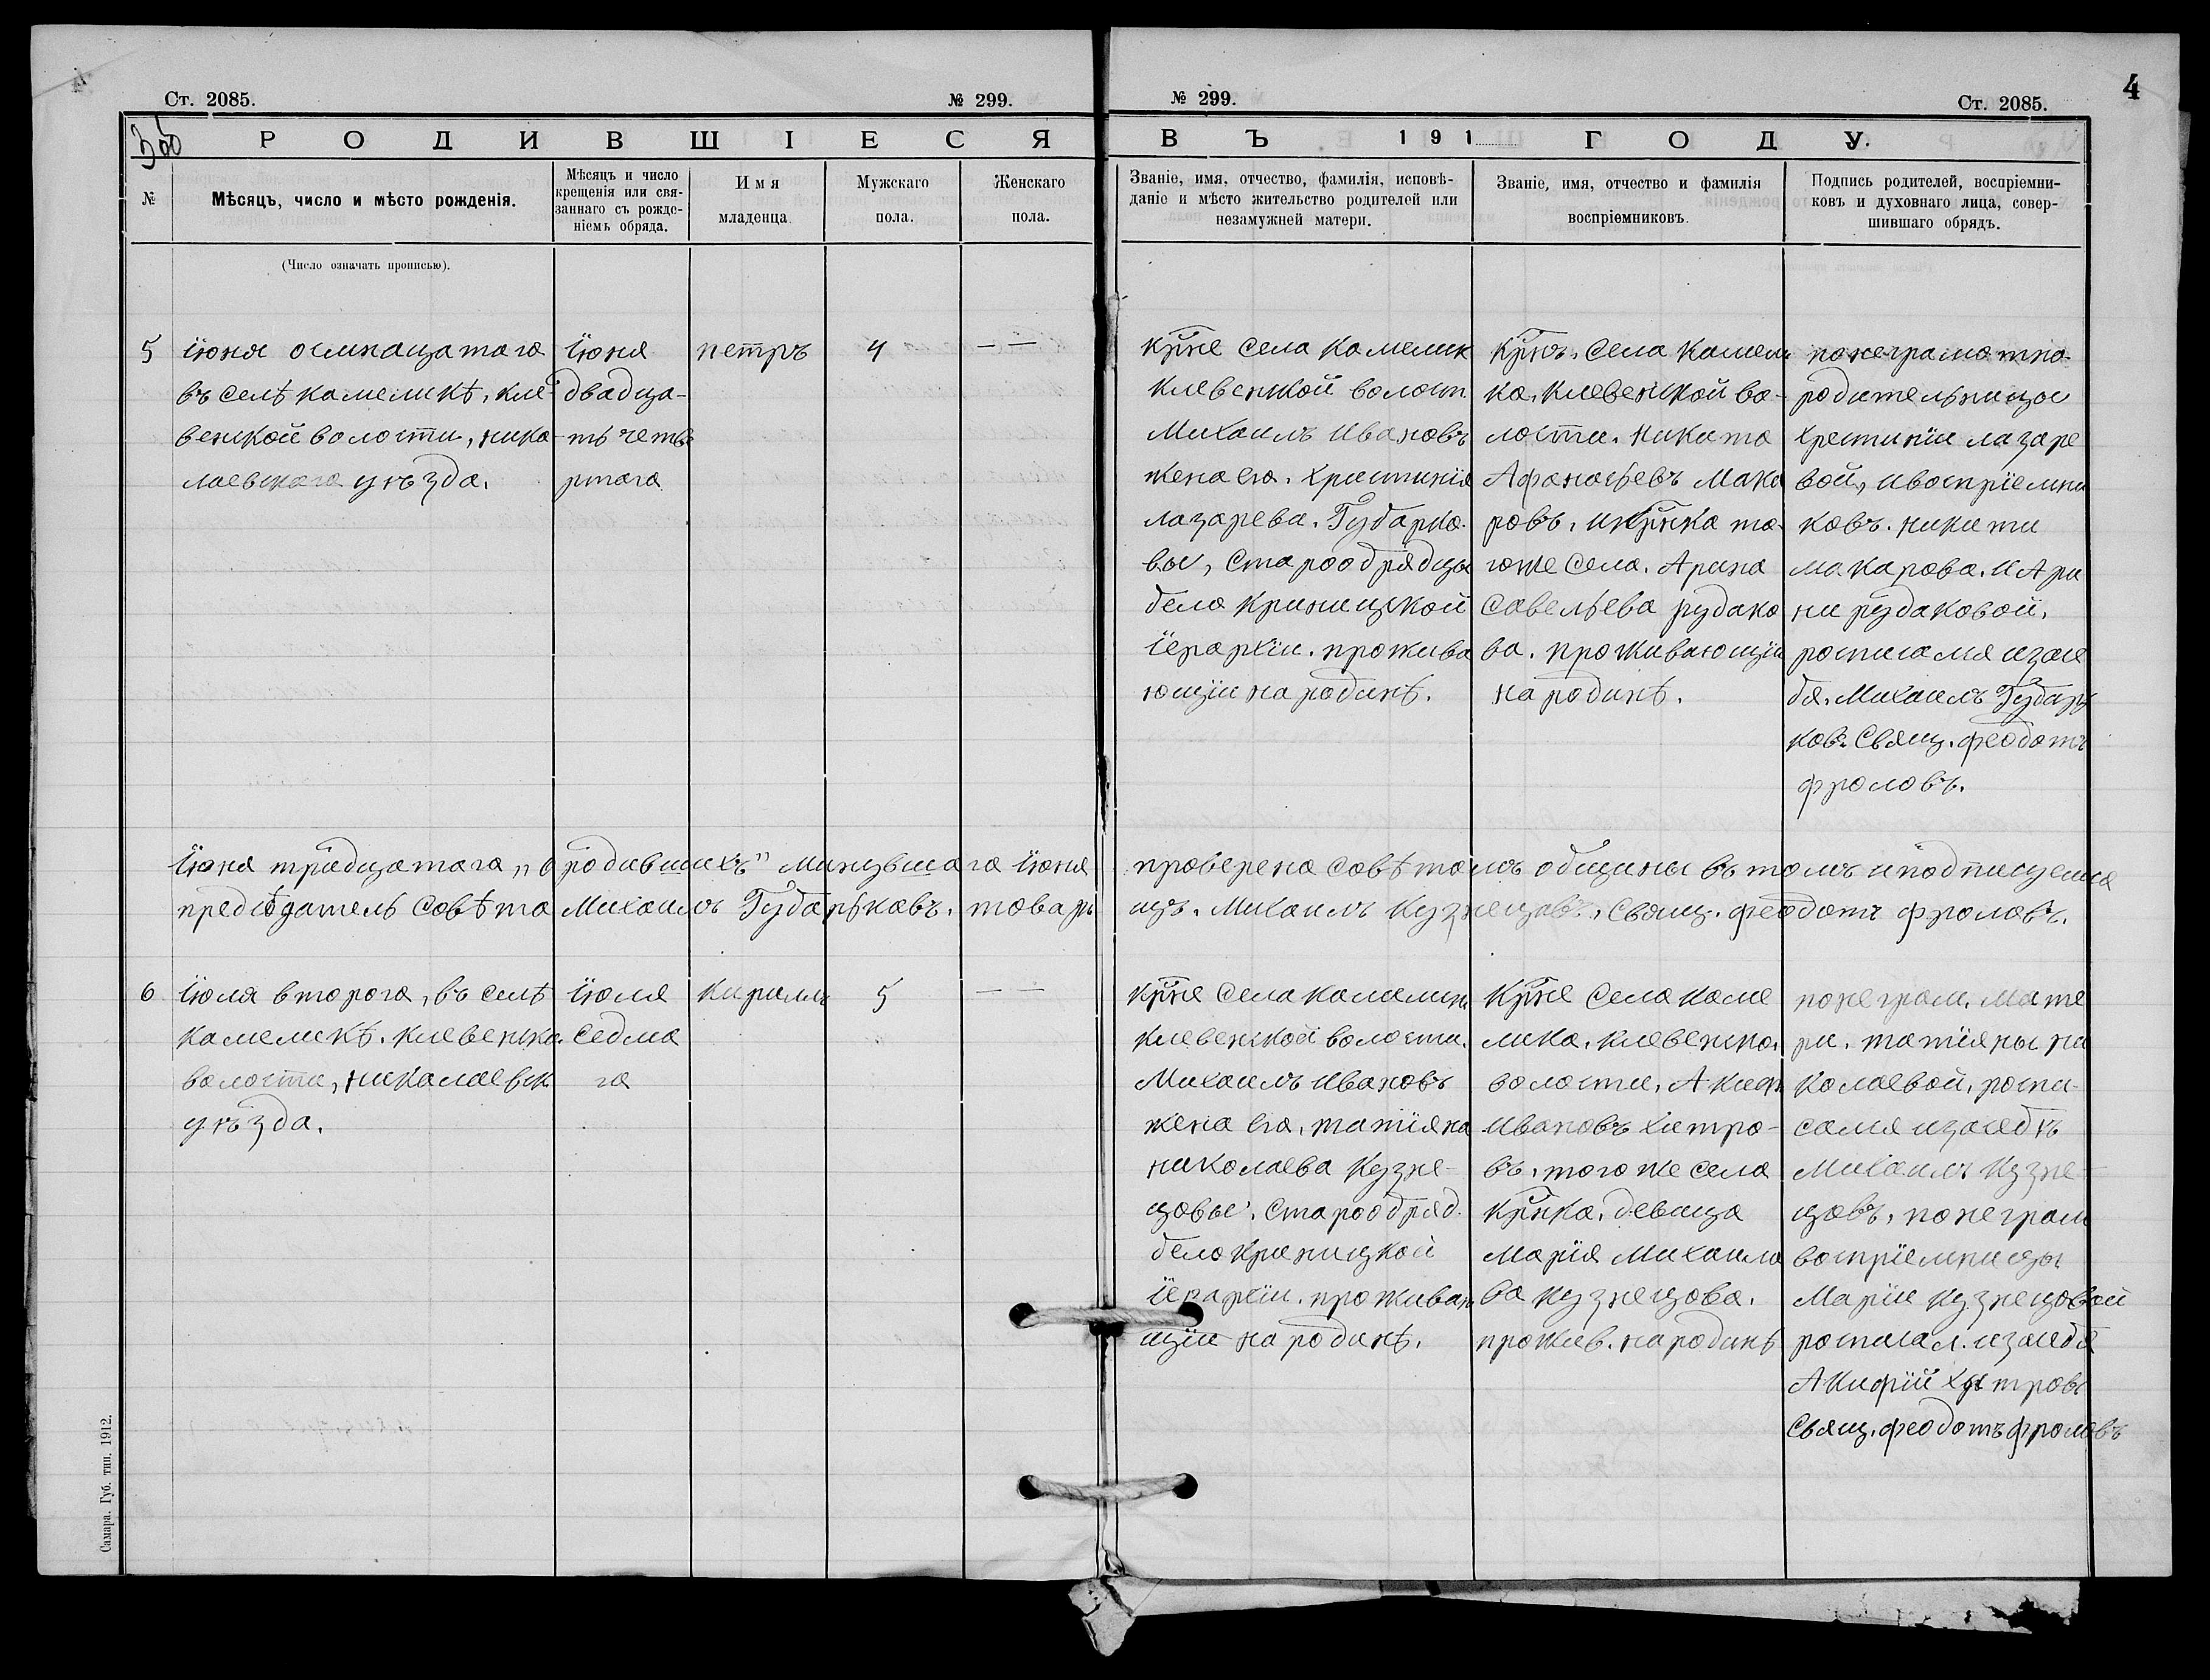 4
Ст. 2085.
№ 299.
№ 299.
Ст. 2085.
РОДИВШІЕСЯ
ВЪ 191 ГОДУ.
№
Мѣсяцъ, число и мѣсто рожденія.
Мѣсяцъ и число
крещенія или свя-
заннаго съ рожде-
ніемъ обряда.
Имя
младенца
Мужскаго
пола.
Женскаго
пола.
Званіе, имя, отчество, фамилія, исповѣ-
даніе и мѣсто жительство родителей или
незамужней матери.
Званіе, имя, отчество и фамилія
воспріемниковъ.
Подпись родителей, воспріемни-
ковъ и духовнаго лица, совер-
шившаго обрядъ.
(Число означать прописью).
5
їюня осмнацатаго
въ селѣ камеликѣ, кле-
венской волости, нико-
лаевскаго уѣзда.
їюня
двадца-
ть четве
ртаго
петръ
4
— —
крне села камелик
клевенкой волост
Михаилъ Ивановъ
жена его. Христинїя
лазарева. Гударко-
вы, старообрядцы
бело криницкой
їерархїи. прожива
ющїи на родинѣ.
Крнъ. села камели
ка. клевенкой во-
лости. никита
Афанасьевъ Мака
ровъ. икрнка то-
гоже села. Арина
савельева рудако
ва. проживающїи
на родинѣ.
понеграмотно-
родительницы
Хрестинїи лазаре
вой, ивоспрїемни
ковъ. никити
макарова. и Ари
ни рудаковой.
росписался изасе
бя. Михаилъ Гударь
ковъ. Свящ. феодотъ
фроловъ.
їюня тридцатаго „о родившихъ" минувшаго їюня
председатель совѣта Михаилъ Гударьковъ. товари
проверено совѣтомъ общины въ томъ и подписуемся
щъ. Михаилъ Кузнецовъ, свящ. феодотъ фроловъ.
6
їюля второго, въ селѣ
камеликѣ. клевенко.
волости, николаевск
уѣзда.
їюля
седма
го
кириллъ
5
— —
крне села камелик
клевенской волости.
Михаилъ Ивановъ
жена его, татїяна
николаева Кузне-
цовы. старообряд.
белокриницкой
їерархїи. проживаю
щїи на родинѣ.
Крне села каме
лика. клевенко.
волости. Акиф
Ивановъ Хитро-
въ, того же села
крнка. девица
Марїя Михаило
ва кузнецова.
прожив. на родинѣ
понеграм. Мате
ри. татїяны ни
колаевой, роспи-
сался изасебѣ
Михаилъ Кузне-
цовъ, понеграм
воспрїемницы
Марїи кузнецовой
росписал. изасебя
Акифїй Хитровъ
Свящ. феодотъ фроловъ
Самара. Губ. тип. 1912.